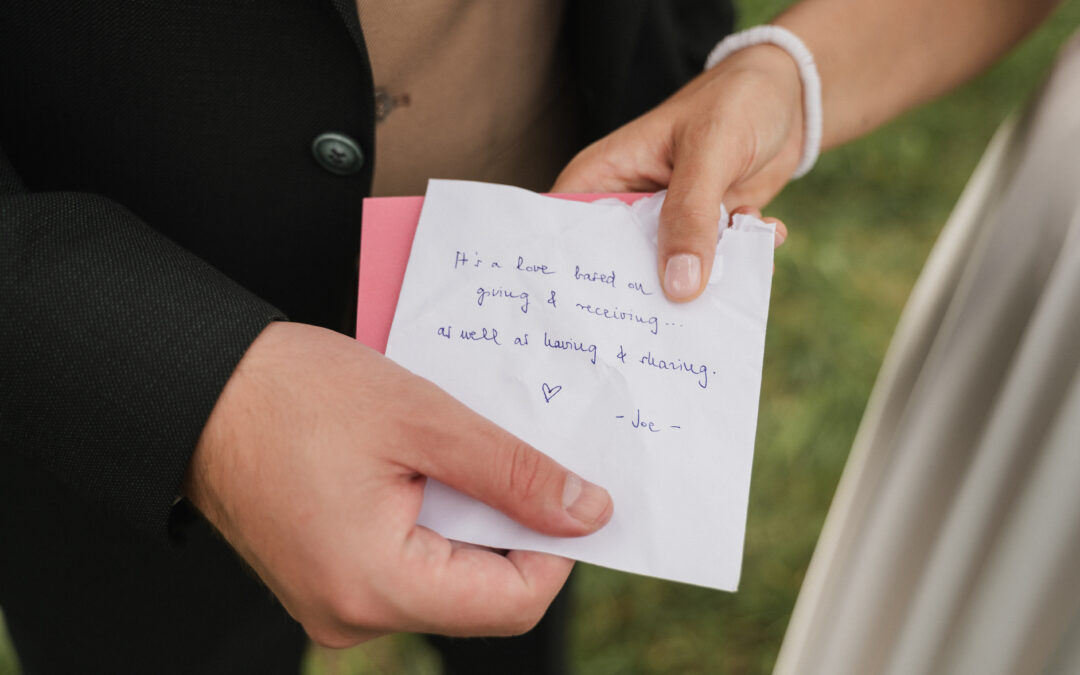 It's a love based on
giving & receiving...
as well as having & sharing.
♡
- Joe -